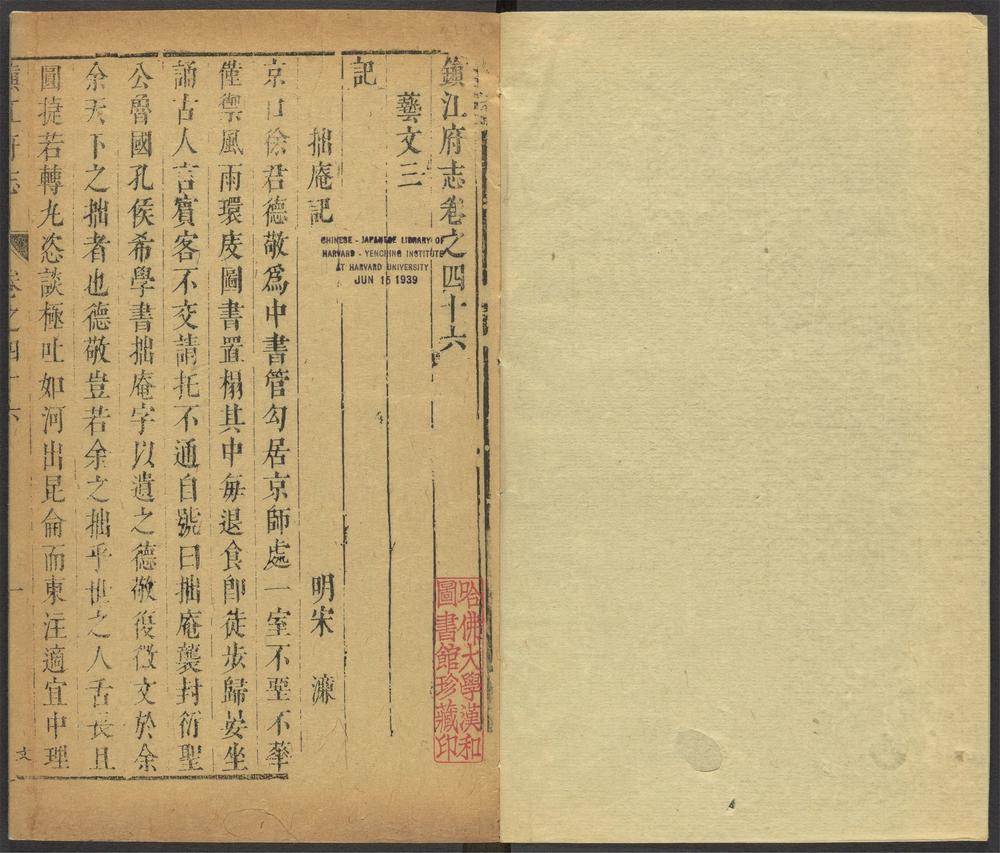 鎮江府志卷之四十六
藝文三
記
拙庵記 明宋 濂
京口徐君德敬為中書管勾居京師處一室不堊不華
僅禦風雨環庋圖書置榻其中每退食卽徒步歸晏坐
誦古人言賓客不交請托不通自號曰拙庵襲封衍聖
公魯國孔侯希學書拙庵字以遺之德敬復徵文於余
余天下之拙者也德敬豈若余之拙乎世之人舌長且
圓捷若轉丸恣談極吐如河出昆侖而東注適宜中理
鎮江府志 卷之四十六 一 文
CHINESE - JAPANESE LIBRARY OF
HARVARD - YENCHING INSTITUTE
AT HARVARD UNIVERSITY
JUN 15 1939
哈佛大學漢和
圖書館珍藏印